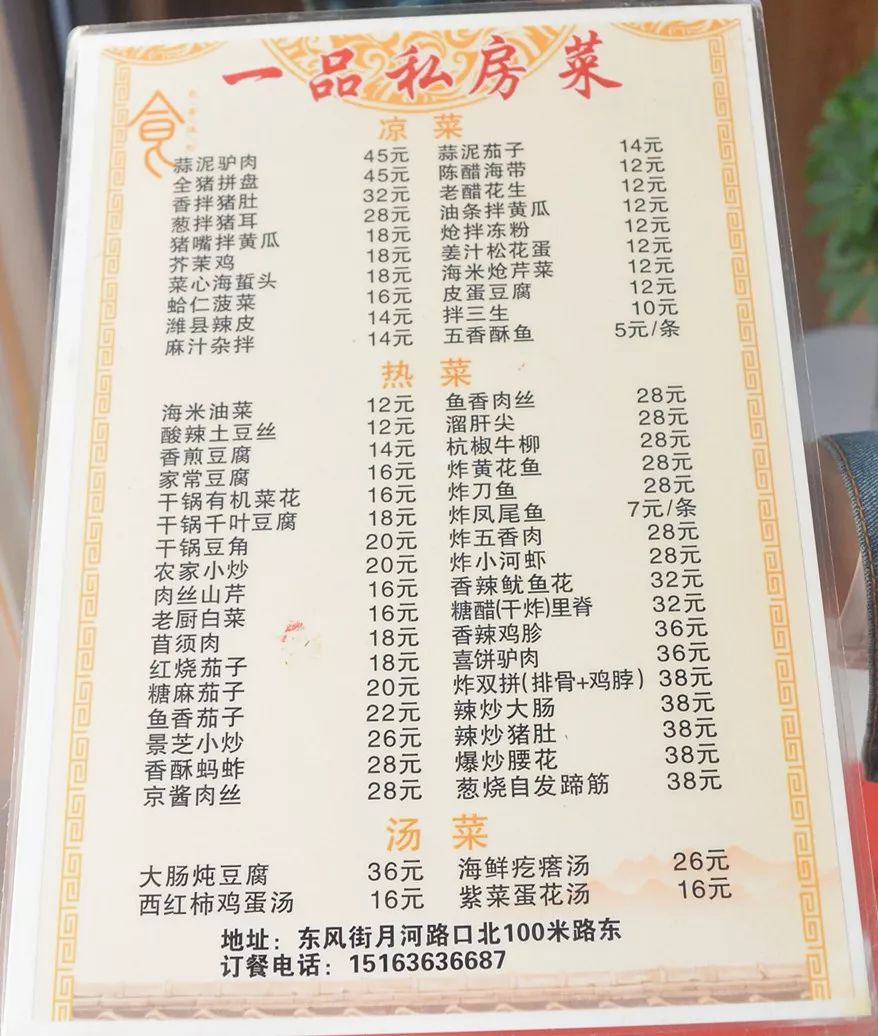 一品私房菜
食
凉菜
蒜泥驴肉 45元 蒜泥茄子 14元
全猪拼盘 45元 陈醋海带 12元
香拌猪肚 32元 老醋花生 12元
葱拌猪耳 28元 油条拌黄瓜 12元
猪嘴拌黄瓜 18元 炝拌冻粉 12元
芥茉鸡 18元 姜汁松花蛋 12元
菜心海蜇头 18元 海米炝芹菜 12元
蛤仁菠菜 16元 皮蛋豆腐 12元
潍县辣皮 14元 拌三生 10元
麻汁杂拌 14元 五香酥鱼 5元/条
热菜
海米油菜 12元 鱼香肉丝 28元
酸辣土豆丝 12元 溜肝尖 28元
香煎豆腐 14元 杭椒牛柳 28元
家常豆腐 16元 炸黄花鱼 28元
干锅有机菜花 16元 炸刀鱼 28元
干锅千叶豆腐 18元 炸凤尾鱼 7元/条
干锅豆角 20元 炸五香肉 28元
农家小炒 20元 炸小河虾 28元
肉丝山芹 16元 香辣鱿鱼花 32元
老厨白菜 16元 糖醋(干炸)里脊 32元
苜须肉 18元 香辣鸡胗 36元
红烧茄子 18元 喜饼驴肉 36元
糖麻茄子 20元 炸双拼(排骨+鸡脖) 38元
鱼香茄子 22元 辣炒大肠 38元
景芝小炒 26元 辣炒猪肚 38元
香酥蚂蚱 28元 爆炒腰花 38元
京酱肉丝 28元 葱烧自发蹄筋 38元
汤菜
大肠炖豆腐 36元 海鲜疙瘩汤 26元
西红柿鸡蛋汤 16元 紫菜蛋花汤 16元
地址：东风街月河路口北100米路东
订餐电话：15163636687